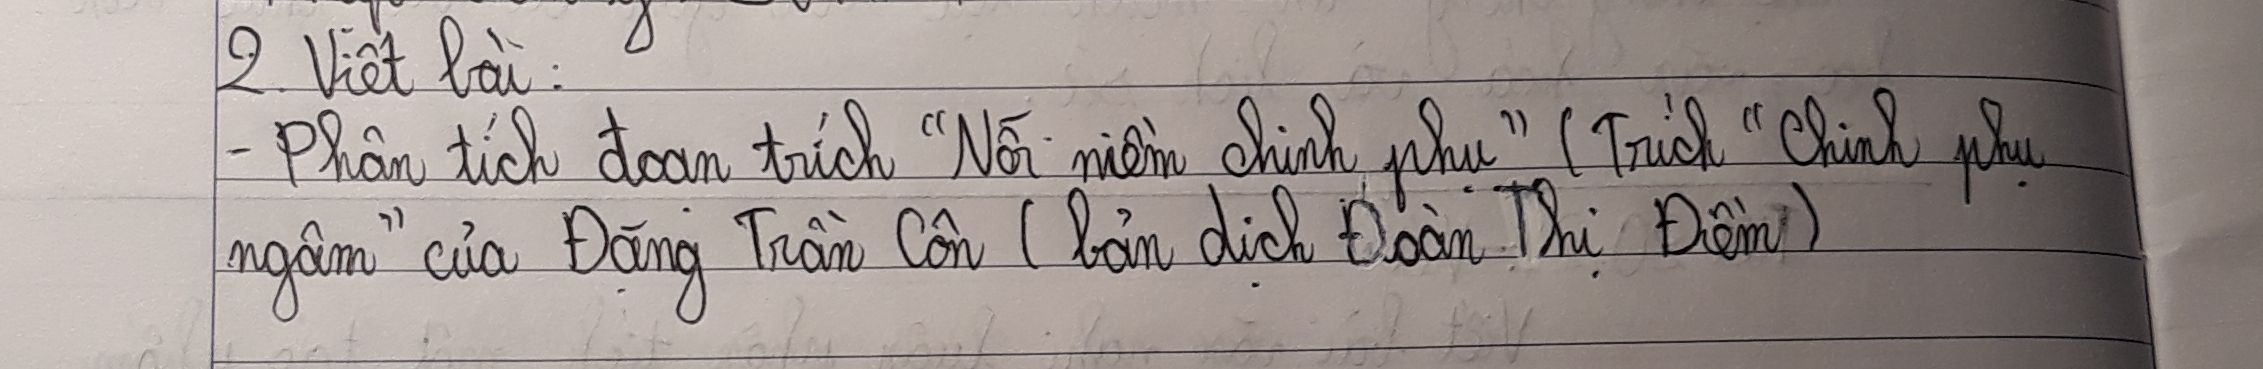 2. Viết bài:
- Phân tích đoạn trích "Nỗi niềm chinh phụ" (Trích "Chinh phụ
ngâm" của Đặng Trần Côn (bản dịch Đoàn Thị Điểm)